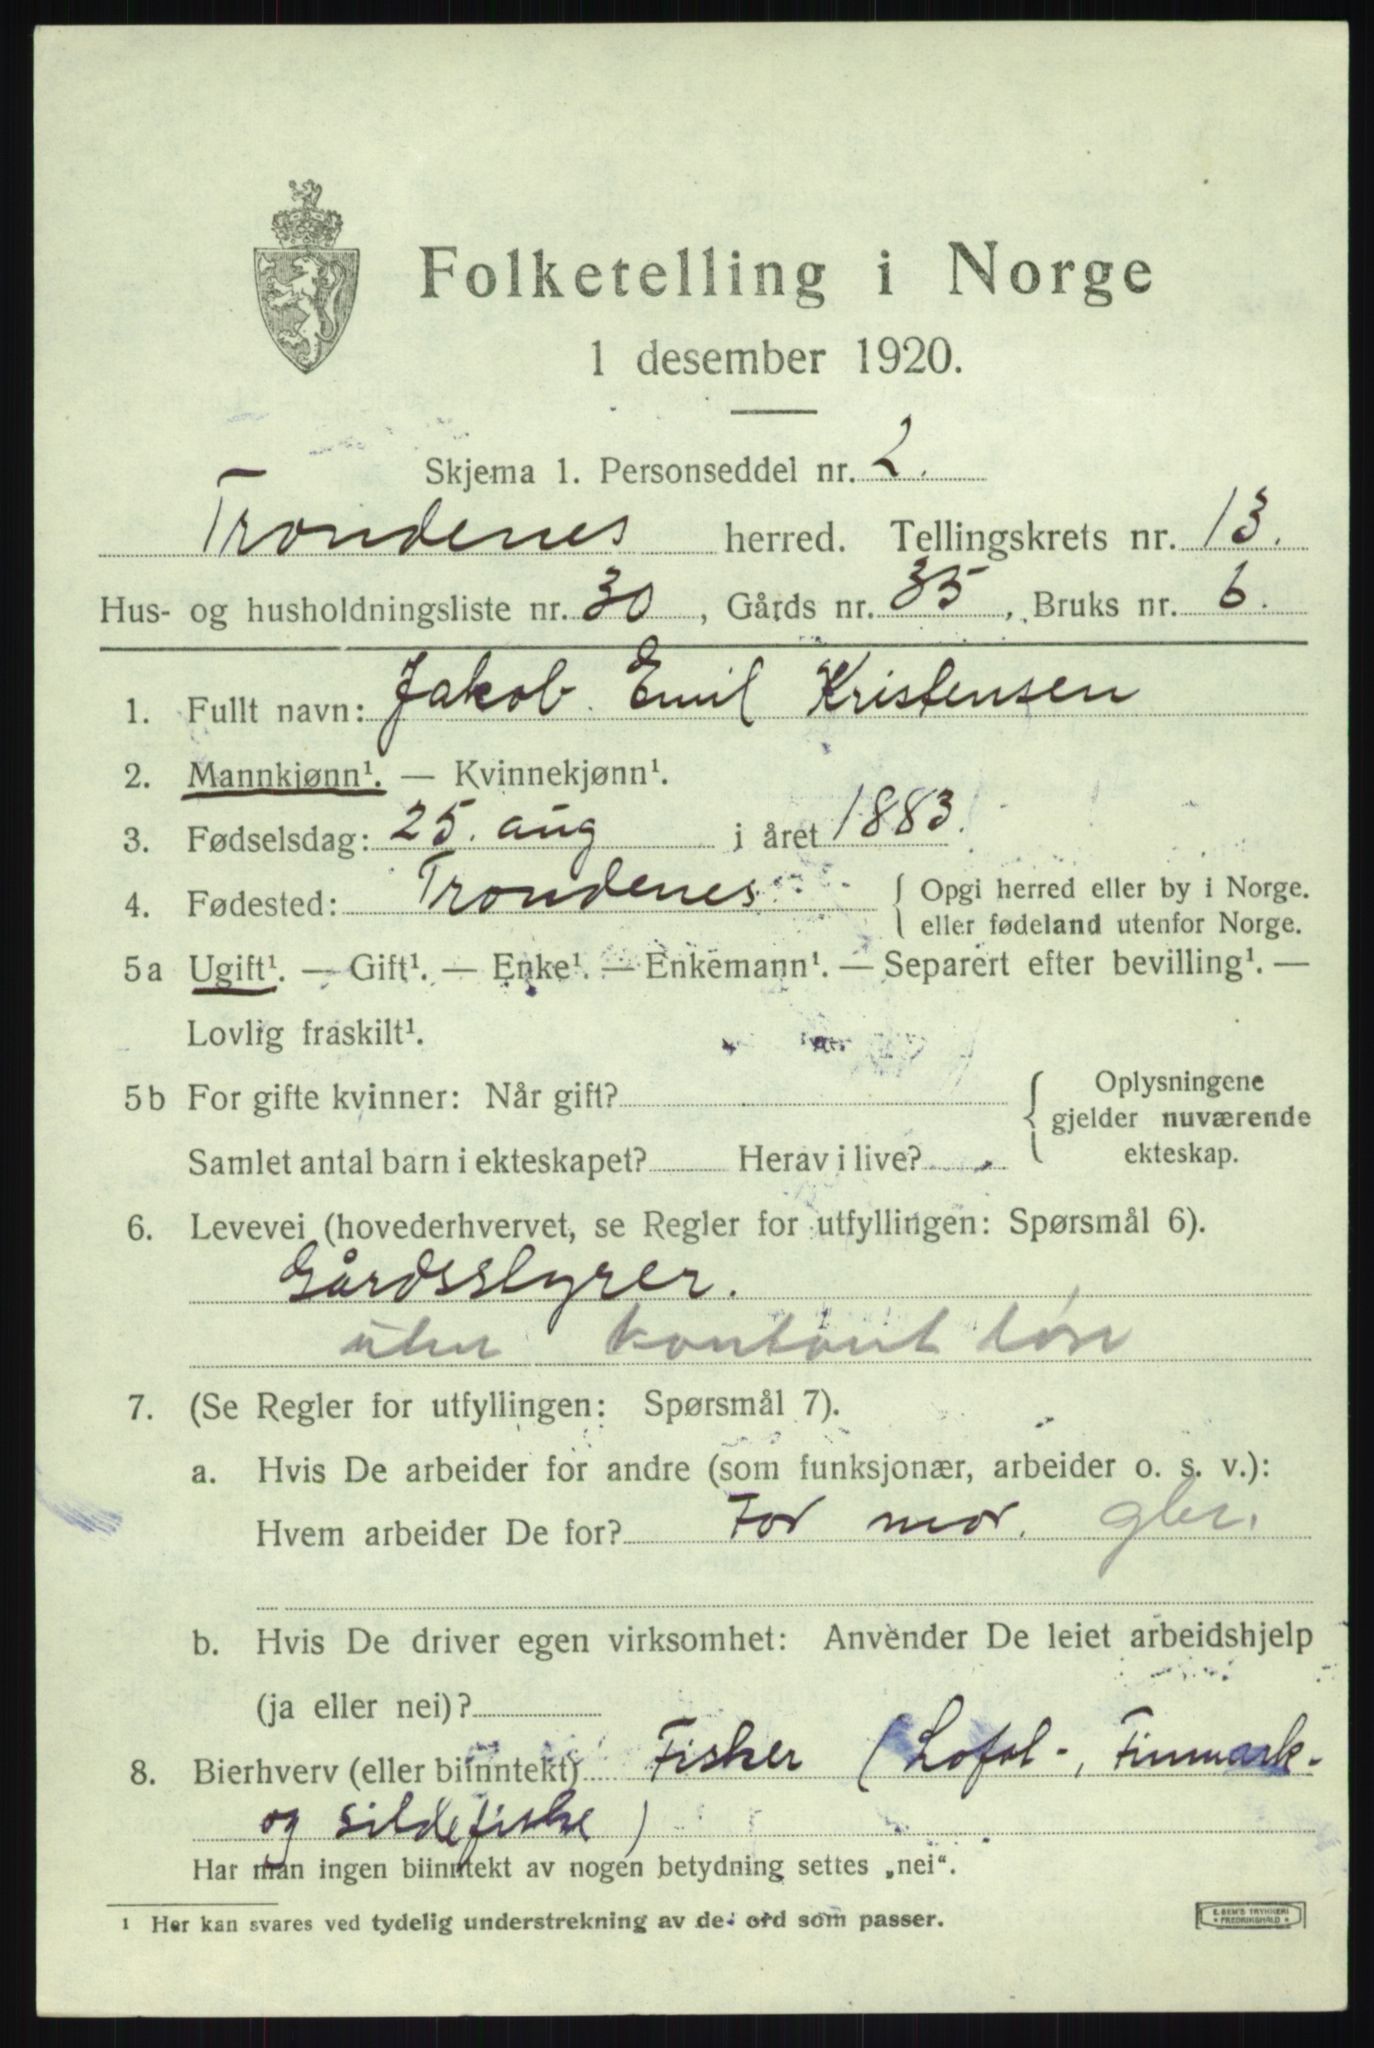 Folketelling i Norge
1 desember 1920.
Skjema 1. Personseddel nr. 2.
Trondenes herred. Tellingskrets nr. 13.
Hus- og husholdningsliste nr. 30, Gårds nr. 35, Bruks nr. 6.
1. Fullt navn: Jakob Emil Kristensen
2. Mannkjønn¹. — Kvinnekjønn¹.
3. Fødselsdag: 25. aug i året 1883.
4. Fødested: Trondenes { Opgi herred eller by i Norge.
eller fødeland utenfor Norge.
5a Ugift¹. — Gift¹. — Enke¹. — Enkemann¹. — Separert efter bevilling¹. —
Lovlig fraskilt¹.
5b For gifte kvinner: Når gift?
Samlet antal barn i ekteskapet? Herav i live?
{ Oplysningene
gjelder nuværende
ekteskap.
6. Levevei (hovederhvervet, se Regler for utfyllingen: Spørsmål 6).
Gårdsstyrer.
uten kontant løn
7. (Se Regler for utfyllingen: Spørsmål 7).
a. Hvis De arbeider for andre (som funksjonær, arbeider o. s. v.):
Hvem arbeider De for? For mor. gbr.
b. Hvis De driver egen virksomhet: Anvender De leiet arbeidshjelp
(ja eller nei)?
8. Bierhverv (eller biinntekt) Fisker (Lofot-, Finmark-
og sildefiske)
Har man ingen biinntekt av nogen betydning settes „nei“.
¹ Her kan svares ved tydelig understrekning av de ord som passer.
E. SEM'S TRYKKERI
FREDRIKSHALD